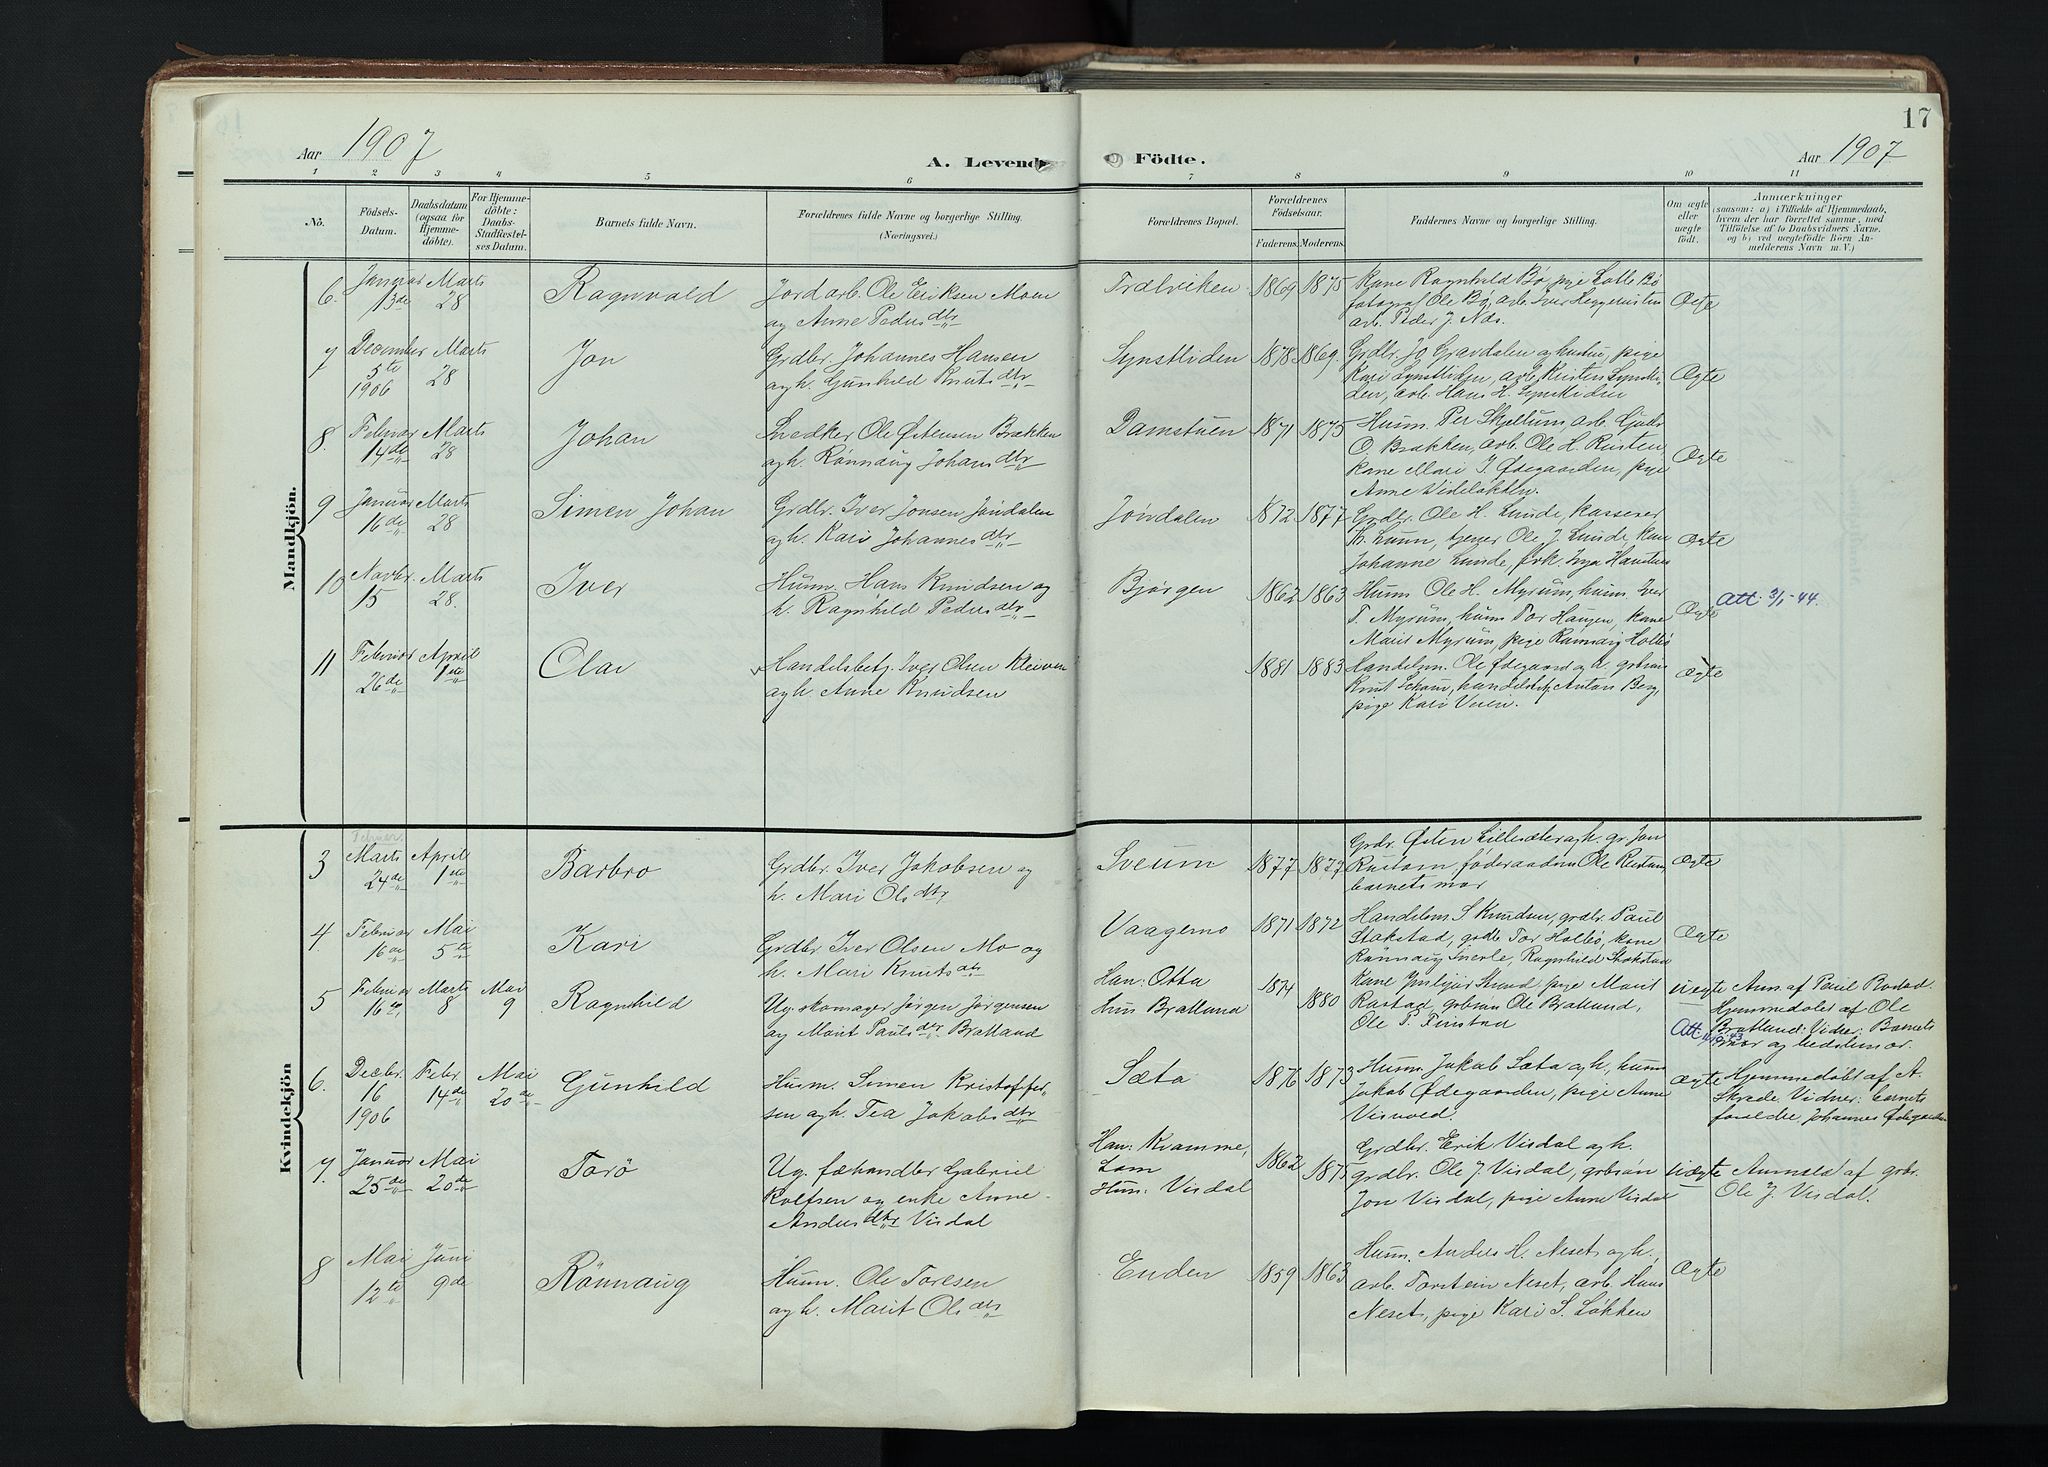 17
Aar 1907
A. Levende Födte.
Aar 1907
1 2 3 4 5 6 7 8 9 10 11
No. Födsels-Datum. Daabsdatum (ogsaa for Hjemme-döbte). For Hjemme-döbte: Daabs-Stadfæstel-ses Datum. Barnets fulde Navn. Forældrenes fulde Navne og borgerlige Stilling. (Næringsvei.) Forældrenes Bopæl. Forældrenes Födselsaar. Faderens. Moderens. Faddernes Navne og borgerlige Stilling. Om ægte eller uægte födt. Anmærkninger (saasom: a) i Tilfælde af Hjemmedaab, hvem der har forrettet samme, med Tilföielse af to Daabsvidners Navne, og b) ved uægtefödte Börn Anmelderens Navn m. V.)
Mandkjön.
6. Januar 13de Marts 28 Ragnvald Jordarb. Ole Eriksen Moen
og Anne Pedersdtr Tralviken 1869 1875 Kone Ragnhild Bø, pige Lotte Bø
fotograf Ole Bø, arb. Iver Heggerusten
arb. Peder J. Nds. Ægte
7 December 5te 1906 Marts 28 Jon Grdbr. Johannes Hansen
og h. Gunhild Knutsdtr Synstliden 1878 1869 Grdbr. Jo Gravdalen og hustru, pige
Kari Synstliden, arb. Kristen Synstli-
den, arb. Hans H. Synstliden Ægte
8. Februar 14de Marts 28 Johan Snedker Ole Østensen Brækken
og h. Rønnaug Johansdtr Damstuen 1871 1875 Husm. Per Skjellum, arb. Gudbr.
O. Brækken, arb. Ole H. Rusten,
kone Mari I. Ødegaarden, pige
Anne Videløkken. Ægte
9 Januar 16de Marts 28 Simen Johan Grdbr. Iver Jonsen Jøndalen
og h. Kari Johannesdtr Jøndalen 1872 1877 Grdbr. Ole H. Lunde, kasserer
Kr. Lunn, tjener Ole J. Lunde, kone
Johanne Lunde, frk. Inga Ægte
10 Novbr. 15 Marts 28. Iver Husm. Hans Knudsen og
h. Ragnhild Pedersdtr Bjørgen 1862 1863 Husm. Ole H. Myrum, husm. Iver
T. Myrum, husm. Tor Haugen, kone
Marit Myrum, pige Rønnaug Holbø Ægte Att. 3/1-44.
11 Februar 26de April 1ste Olav Handelsbetj. Iver Olsen Kleiven
og h. Anne Knudsen 1881 1883 Handelsm. Ole Ødegaard og h. grbrsøn
Knut handelsbetj. Anton Berg,
pige Kari Veien. Ægte
Kvindekjön
Februar
3 Marts 24de April 1ste Barbro Grdbr. Iver Jakobsen og
h. Mari Olsdtr, Sveum 1877 1877 Grdr. Østen Lillesæter og h. gr. Jon
Rustom, føderaadsm. Ole Rustom,
barnets mor Ægte
4 Februar 16de Mai 5te Kari Grdbr. Iver Olsen Mo og
h. Mari Knutsdtr Vaagemo 1871 1872 Handelsm S. Knudsen, grdbr. Paul
Stokstad, grdbr Tor Holbø, kone
Rønnaug Snerle, Ragnhild Stokstad Ægte
5 Februar 16de Marts 8 Mai 9 Ragnhild Ug. skomager Jørgen Jørgensen
og Marit Paulsdtr. Bratland Han: Otta
Hun Bratland 1874 1880 Kone Ingebjør Strand, pige Marit
Rustad, grbrsøn Ole Bratland,
Ole P. Finstad Uægte Anm. af Paul Rustad.
Hjemmedøbt af Ole
Bratland. Vidner: Barnets
mor og bedstemor.
Att. 43
6. Decbr. 16 1906 Febr. 14de Mai 20de Gunhild Husm. Simen Kristoffer-
sen og h. Tea Jakobsdtr Sæta 1876 1873 Husm. Jakob Sæta og h, husm
Jakob Ødegaarden, pige Anne
Visvold, Ægte Hjemmedøbt af A.
Skrede. Vidner: barnets
forældre, Johannes Ødegaarden
7. Januar 25de Mai 20de Torø Ug. fæhandler Gabriel
Rolfsen og enke Anne
Andersdtr Visdal Han: Kramme,
Lom
Hun: Visdal 1862 1875 Grdbr. Erik Visdal og h.
grdbr. Ole J. Visdal, grbrsøn
Jon Visdal, pige Anne Visdal Uægte Anmeld af grbr.
Ole J. Visdal.
8 Mai 12te Juni 9de Rønnaug Husm. Ole Toresen
og h. Marit Olsdtr Enden 1859 1863 Husm. Anders H. Neset og h.
arb. Torstein Neset, arb. Hans
Neset, pige Kari S. Løkken Ægte